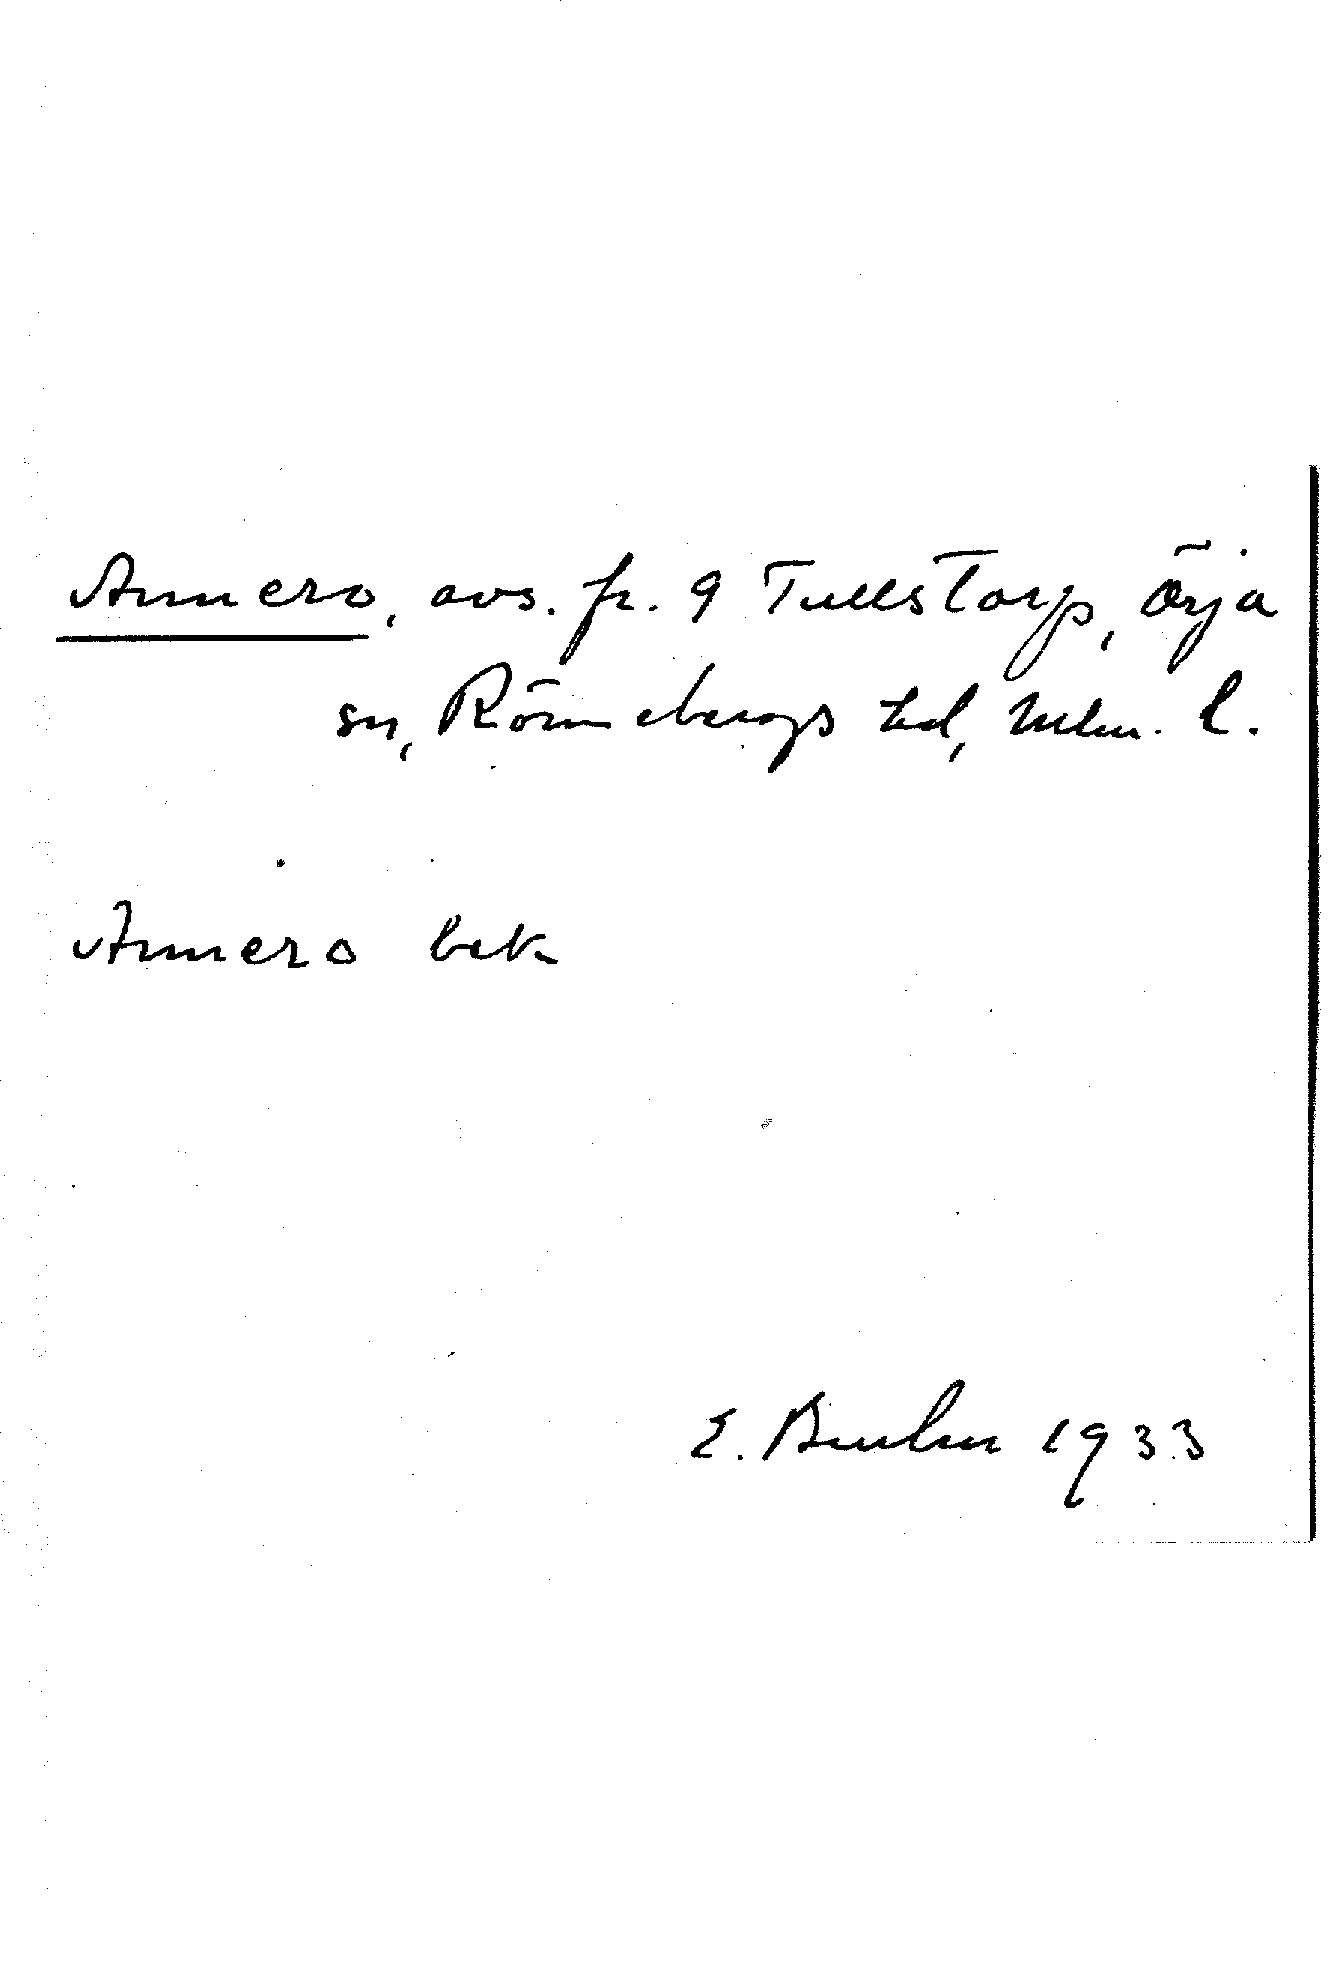 Annero, avs. fr. 9 Tullstorp, Örja
sn, Rönnebergs hd, Mlm. l.
Annero bek
E. Bruhn 1933